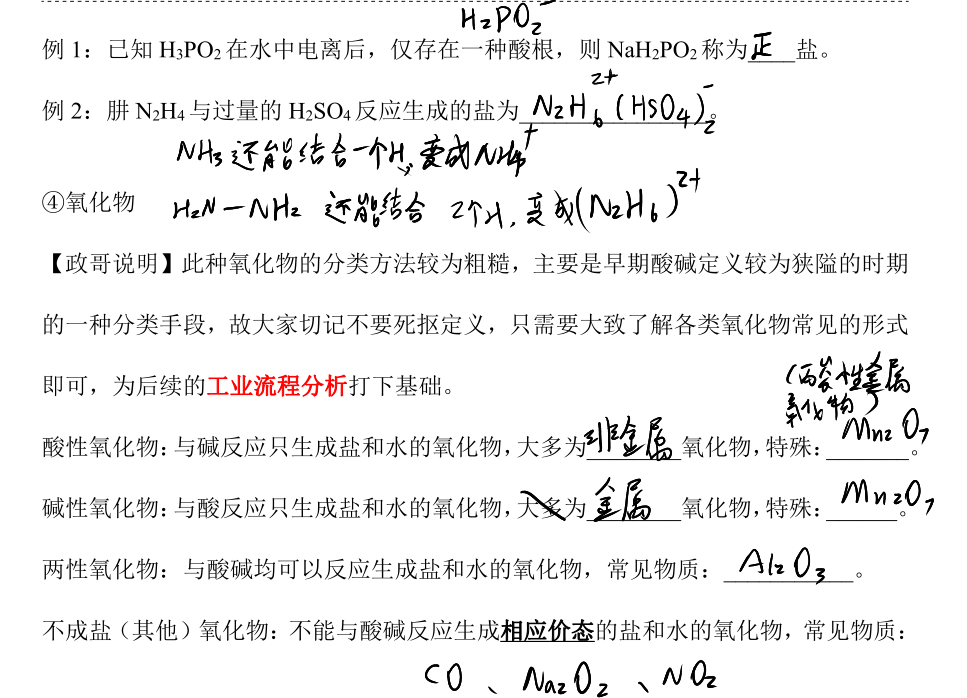 H₂PO₂⁻
例 1：已知 H₃PO₂ 在水中电离后，仅存在一种酸根，则 NaH₂PO₂ 称为 正 盐。
例 2：肼 N₂H₄ 与过量的 H₂SO₄ 反应生成的盐为 N₂H₆²⁺(HSO₄)₂⁻。
NH₃还能结合一个H，变成NH₄⁺
④氧化物 H₂N—NH₂ 还能结合 2个H，变成(N₂H₆)²⁺
【政哥说明】此种氧化物的分类方法较为粗糙，主要是早期酸碱定义较为狭隘的时期
的一种分类手段，故大家切记不要死抠定义，只需要大致了解各类氧化物常见的形式
即可，为后续的工业流程分析打下基础。
(酸性金属
氧化物)
酸性氧化物：与碱反应只生成盐和水的氧化物，大多为 非金属 氧化物，特殊： Mn₂O₇ 。
碱性氧化物：与酸反应只生成盐和水的氧化物，大多为 金属 氧化物，特殊： Mn₂O₇ 。
两性氧化物：与酸碱均可以反应生成盐和水的氧化物，常见物质： Al₂O₃ 。
不成盐（其他）氧化物：不能与酸碱反应生成相应价态的盐和水的氧化物，常见物质：
CO、Na₂O₂、NO₂